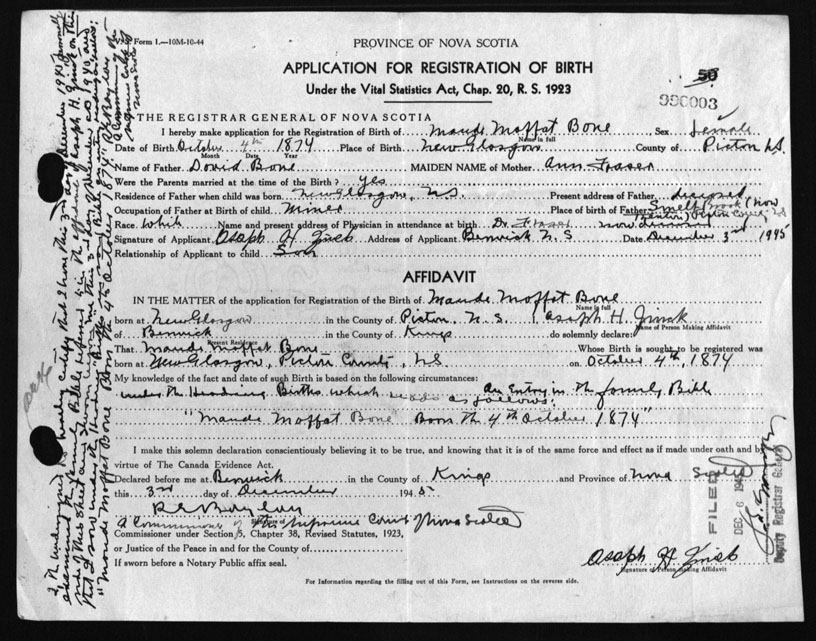 Form 1.—10M-10-44
PROVINCE OF NOVA SCOTIA
APPLICATION FOR REGISTRATION OF BIRTH
Under the Vital Statistics Act, Chap. 20, R. S. 1923
50
990003
THE REGISTRAR GENERAL OF NOVA SCOTIA
I hereby make application for the Registration of Birth of Maude Moffat Bone Sex female
Name in full
Date of Birth October 4th 1874 Place of Birth New Glasgow County of Pictou N.S.
Month Date Year
Name of Father David Bone MAIDEN NAME of Mother Ann Fraser
Were the Parents married at the time of the Birth? yes
Residence of Father when child was born New Glasgow, N.S. Present address of Father deceased
Occupation of Father at Birth of child Miner Place of birth of Father Smelt Brook (now
Race White Name and present address of Physician in attendance at birth Dr. Fraser now deceased
Signature of Applicant Asaph H. Address of Applicant Berwick N S Date December 3rd 1945
Relationship of Applicant to child Son
AFFIDAVIT
IN THE MATTER of the application for Registration of the Birth of Maude Moffat Bone
Name in full
born at New Glasgow in the County of Pictou, N.S. I, Asaph H.
Name of Person Making Affidavit
of Berwick in the County of Kings do solemnly declare:
Present Residence
That Maude Moffat Bone Whose Birth is sought to be registered was
born at New Glasgow, Pictou County, N.S. on October 4th, 1874
My knowledge of the fact and date of such Birth is based on the following circumstances: An Entry in the family Bible
under the Heading Births which reads as follows:
"Maude Moffat Bone Born the 4th October 1874"
I make this solemn declaration conscientiously believing it to be true, and knowing that it is of the same force and effect as if made under oath and by
virtue of The Canada Evidence Act.
Declared before me at Berwick in the County of Kings and Province of Nova Scotia
this 3rd day of December 1945.
A Commissioner of the Supreme Court of Nova Scotia
Commissioner under Section 5, Chapter 38, Revised Statutes, 1923,
or Justice of the Peace in and for the County of
If sworn before a Notary Public affix seal.
Asaph H.
Signature of Person Making Affidavit
For Information regarding the filling out of this Form, see Instructions on the reverse side.
FILED
DEC 6 1945
Deputy Registrar General
"Maude Moffat Bone Born the 4th October 1874"